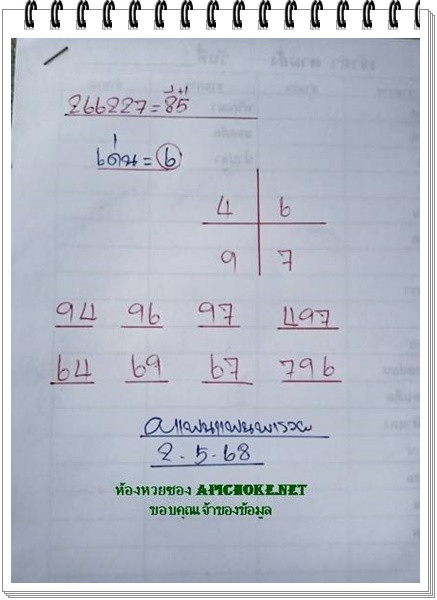 -1 +1
266227=85
เด่น=6
4 6
9 7
94 96 97 497
64 69 67 796
2.5.68
ห้องหวยซอง APICHOKE.NET
ขอบคุณเจ้าของข้อมูล